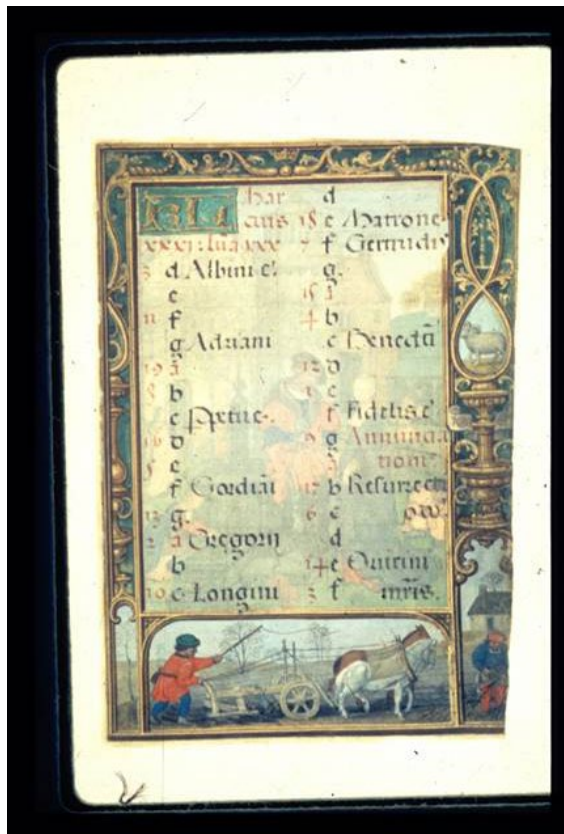 KL Mar
cius
xxxi luna xxx
3 d Albini e
e
11 f
g Adriani
19 a
8 b
c Ppetue
16 d
5 e
f Gordiai
13 g
2 a Gregorij
b
10 c Longini
d
18 e Matrone
7 f Gertrudis
g
15 a
4 b
c Benedcti
12 d
1 e
f Fidelis e
9 g Annuncia
a tionis
17 b Resurrect
6 c
d
14 e Quirini
3 f mris